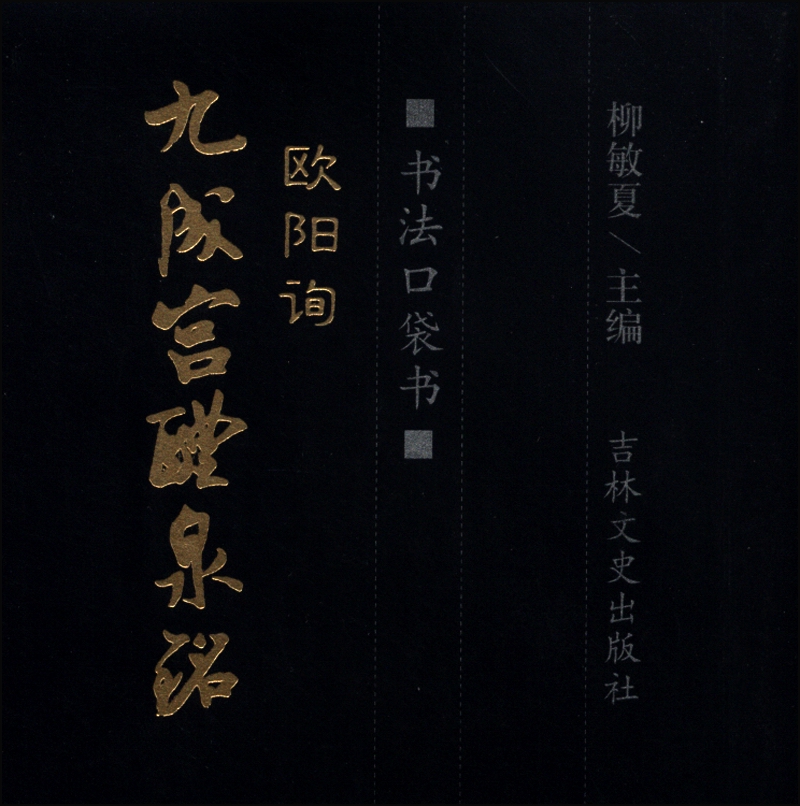 柳敏夏/主编
吉林文史出版社
■书法口袋书■
欧阳询
九成宫醴泉铭